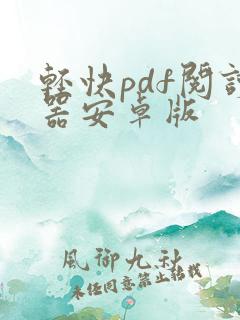 輕快pdf閱
器安卓版
風御九秋
未经同意禁止转载